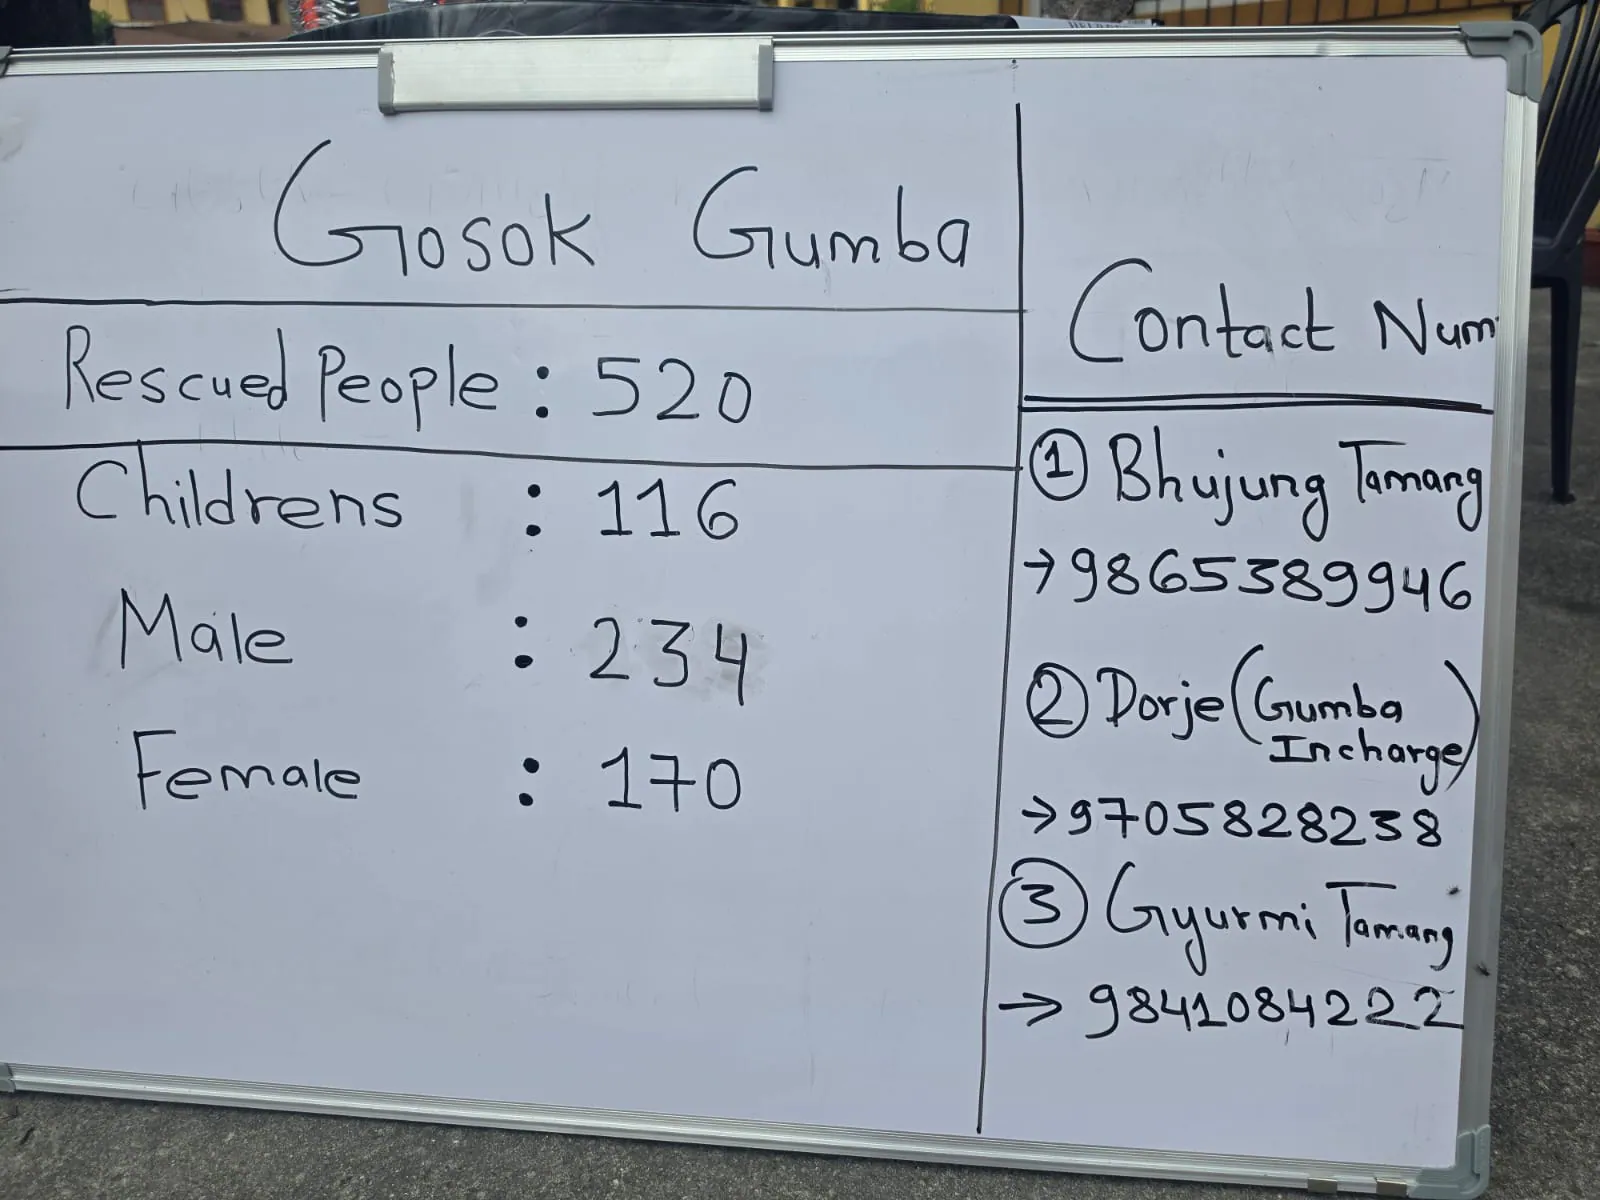 Gosok Gumba
Rescued People : 520
Childrens : 116
Male : 234
Female : 170
Contact Num
① Bhujung Tamang
→ 9865389946
② Dorje (Gumba
Incharge)
→ 9705828238
③ Gyurmi Tamang
→ 9841084222